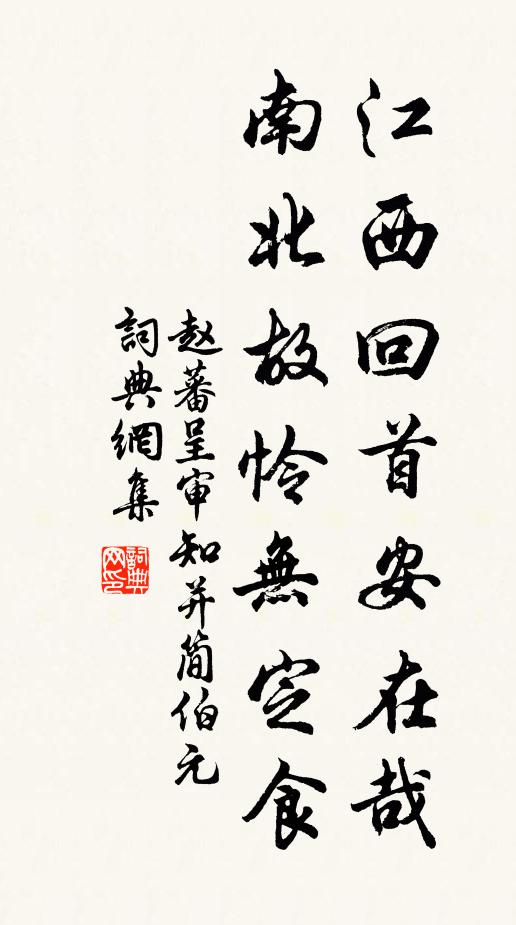 江西回首安在哉
南北故怜無定食
赵蕃呈审知并简伯元
詞典網集
詞典网印